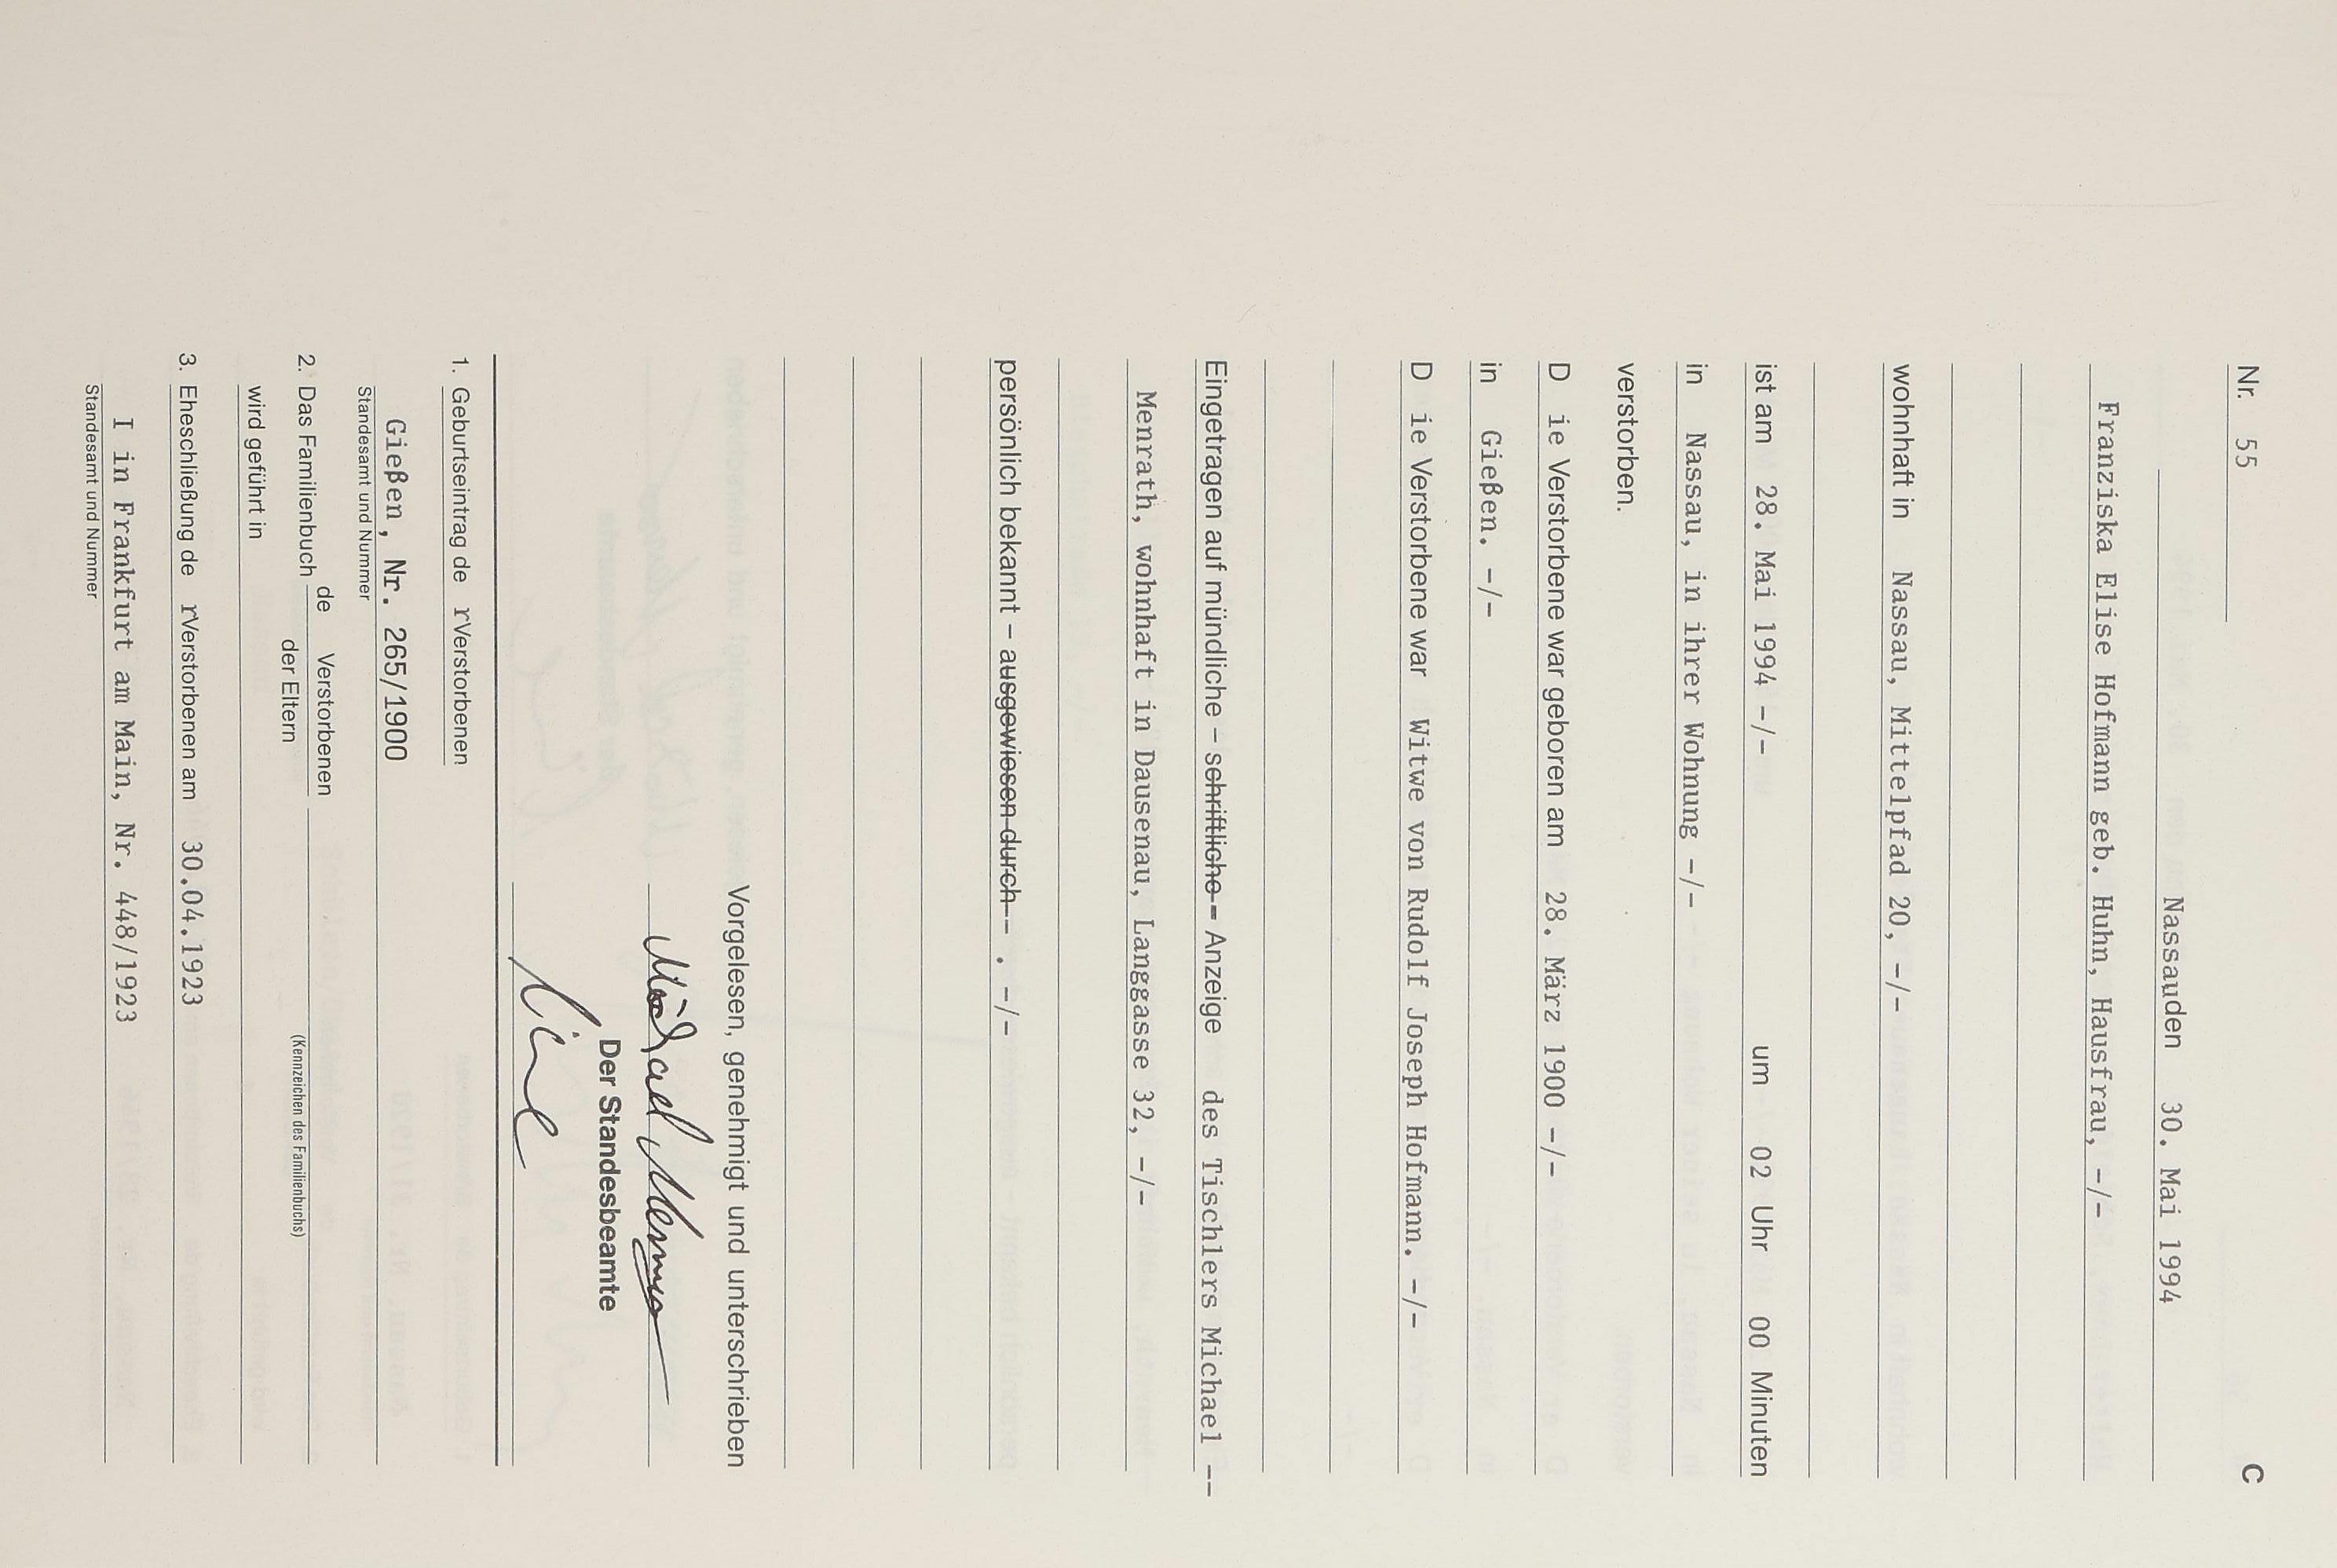 Nr. 55 C
Nassau den 30. Mai 1994
Franziska Elise Hofmann geb. Huhn, Hausfrau, -/-
wohnhaft in Nassau, Mittelpfad 20, -/-
ist am 28. Mai 1994 -/- um 02 Uhr 00 Minuten
in Nassau, in ihrer Wohnung -/-
verstorben.
D ie Verstorbene war geboren am 28. März 1900 -/-
in Gießen. -/-
D ie Verstorbene war Witwe von Rudolf Joseph Hofmann. -/-
Eingetragen auf mündliche – schriftliche – Anzeige des Tischlers Michael --
Menrath, wohnhaft in Dausenau, Langgasse 32, -/-
persönlich bekannt – ausgewiesen durch -- . -/-
Vorgelesen, genehmigt und unterschrieben
Michael
Der Standesbeamte
1. Geburtseintrag de r Verstorbenen
Gießen, Nr. 265/1900
Standesamt und Nummer
de Verstorbenen
2. Das Familienbuch
der Eltern (Kennzeichen des Familienbuchs)
wird geführt in
3. Eheschließung de r Verstorbenen am 30.04.1923
I in Frankfurt am Main, Nr. 448/1923
Standesamt und Nummer